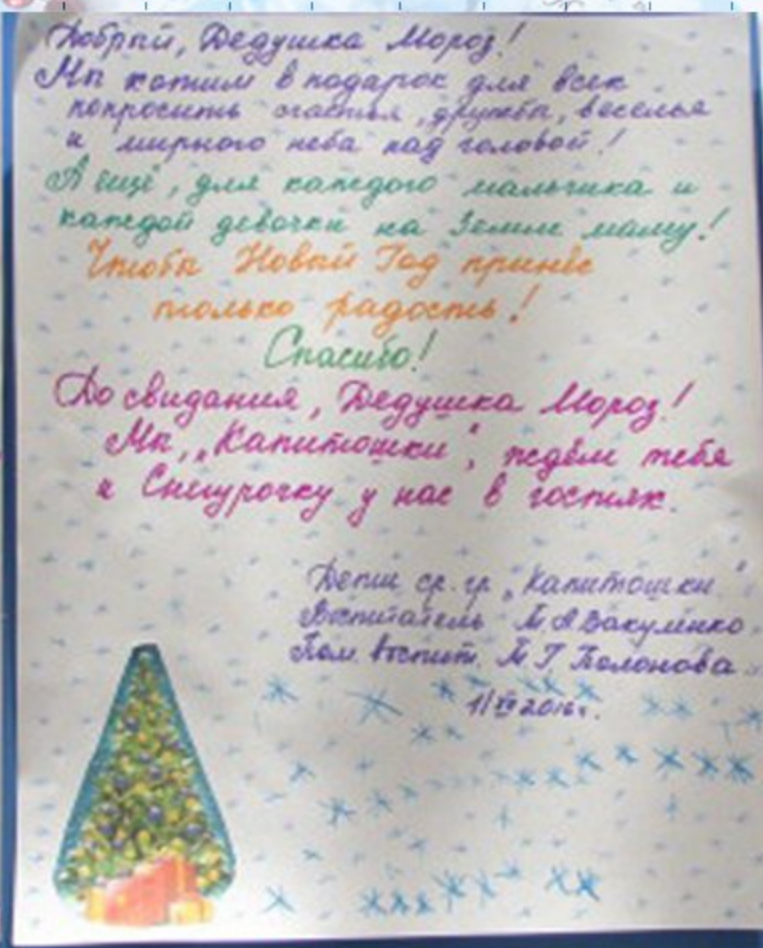 Добрый, Дедушка Мороз!
Мы хотим в подарок для всех
попросить счастья, дружбы, веселья
и мирного неба над головой!
А ещё, для каждого мальчика и
каждой девочки на Земле маму!
Чтобы Новый Год принёс
только радость!
Спасибо!
До свидания, Дедушка Мороз!
Мы, „Капитошки“, ждём тебя
и Снегурочку у нас в гостях.
Дети ср. гр. „Капитошки“
Воспитатель М.А Вакуленко
Пом. воспит. М Г
2016г.